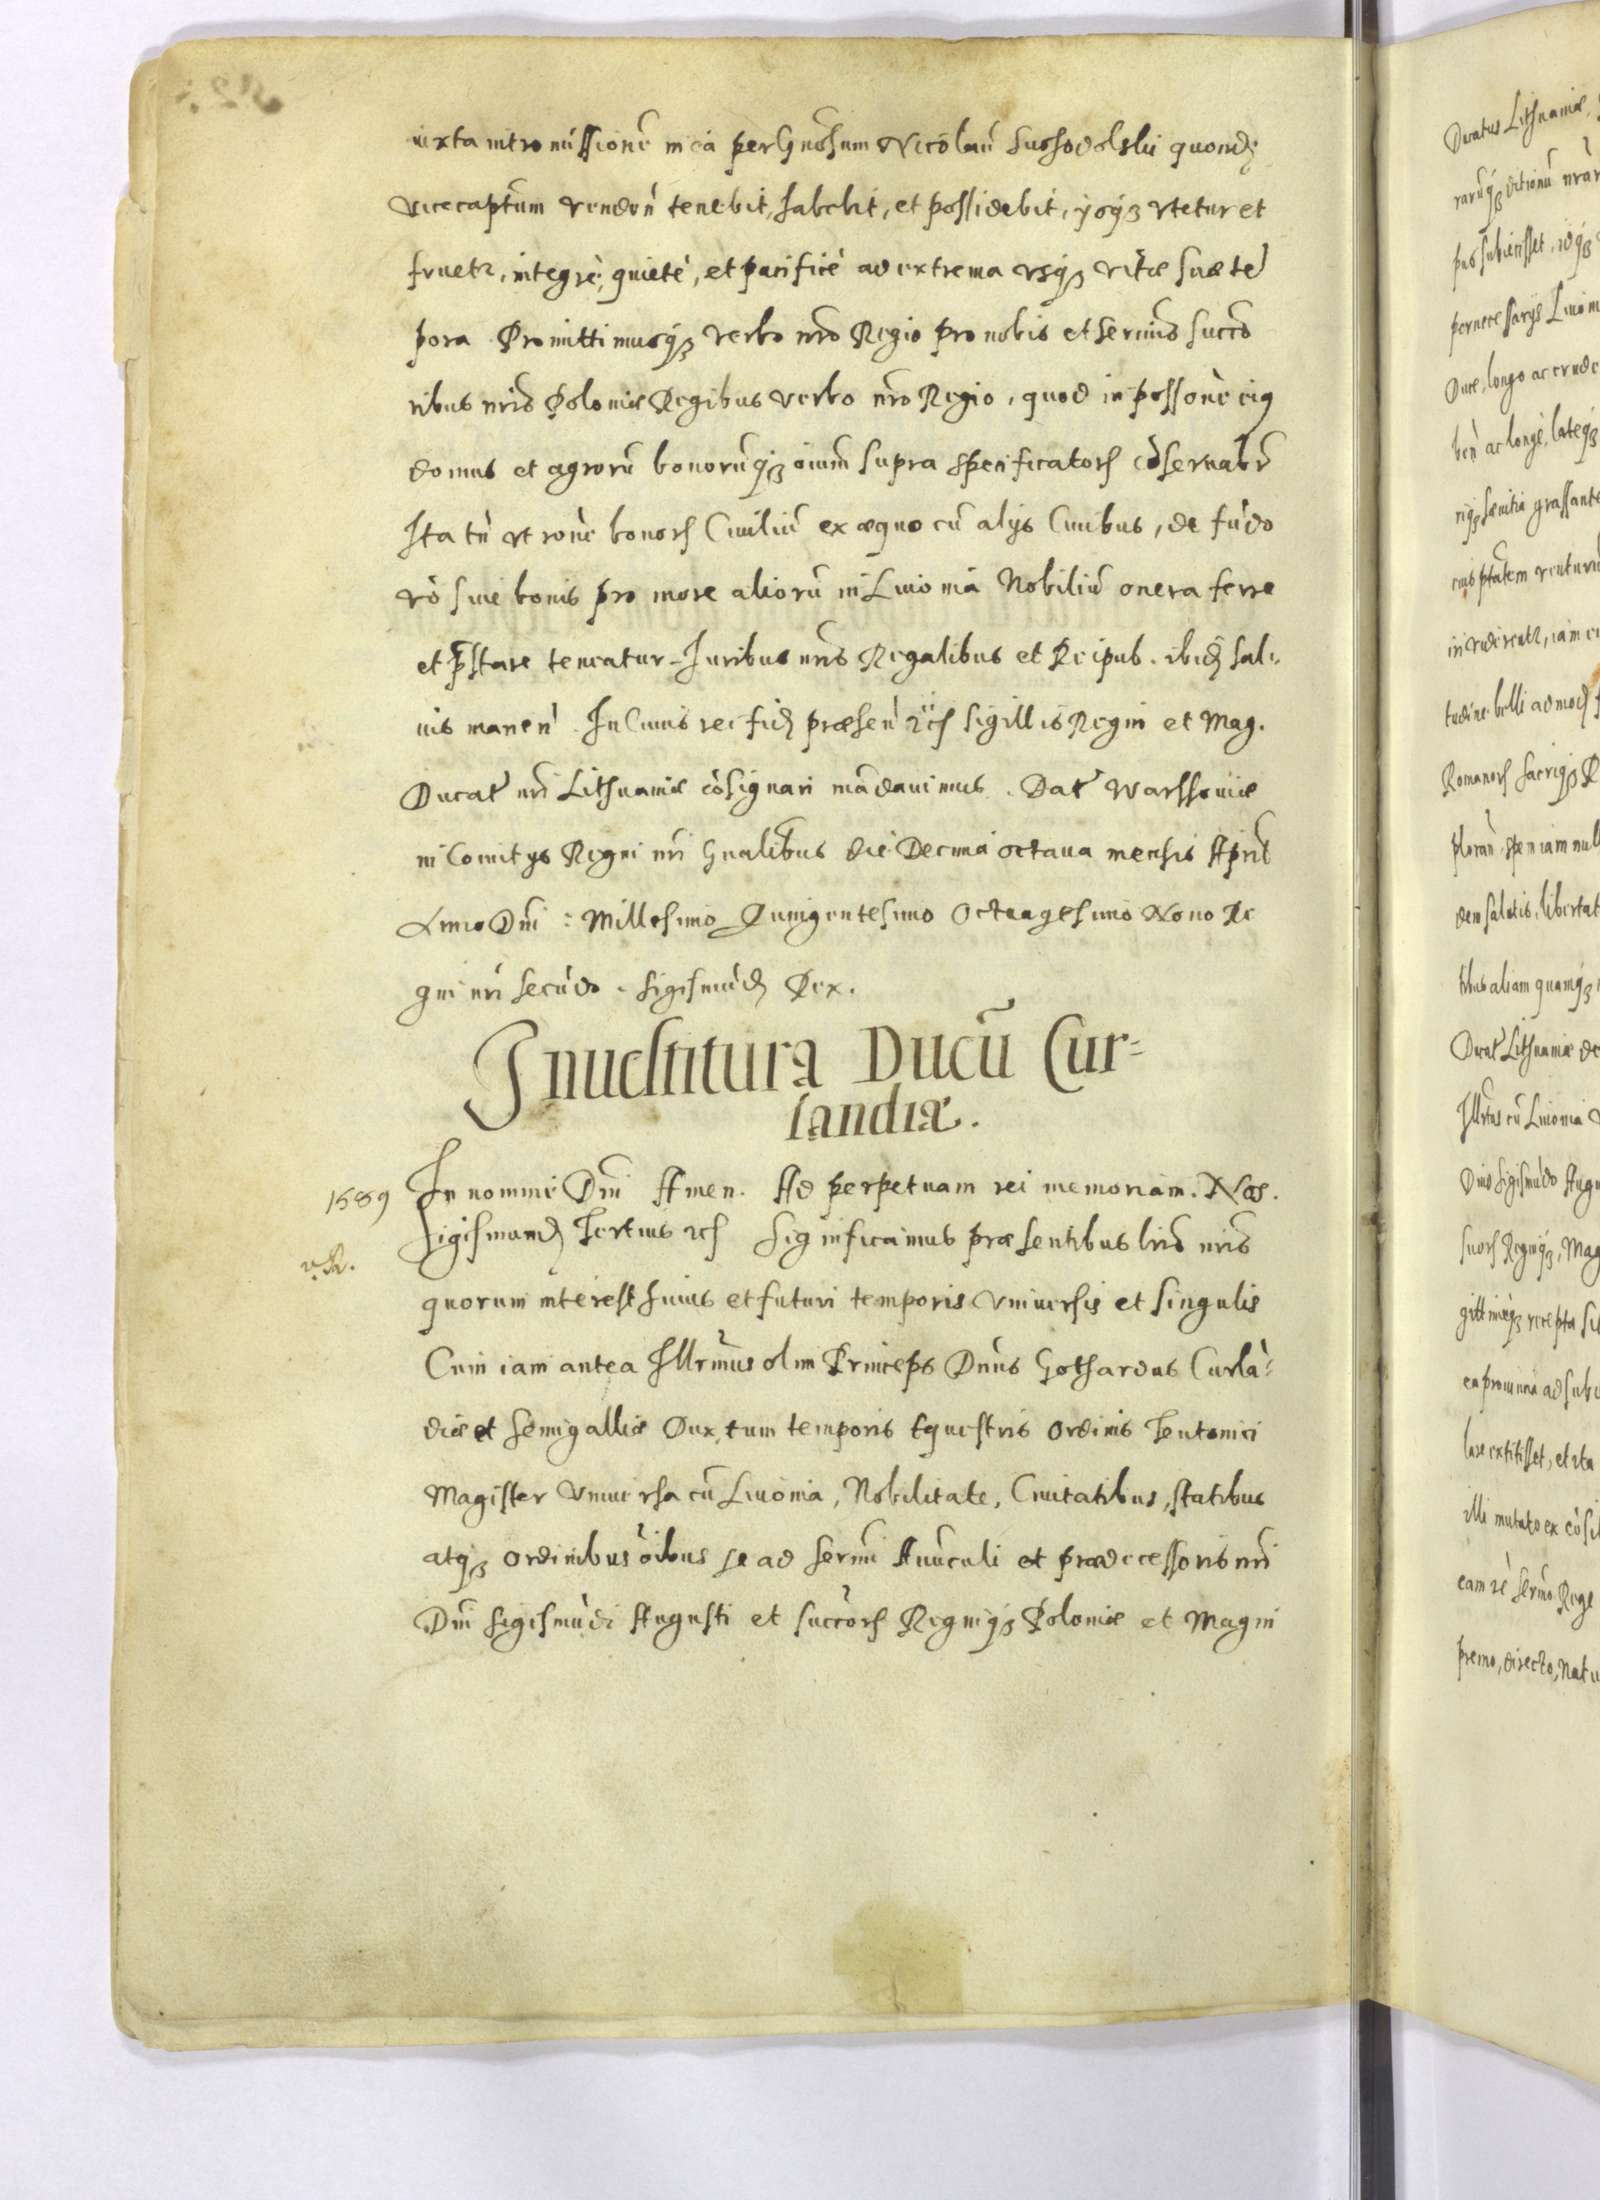 iuxta intromissionē in ea per Gnosum Nicolaū Suchodolski quondā
vicecaptum vendeñ tenebit, habebit, et possidebit, ysq3 vtetur et
fruetr, integrè, quietè, et pacificè ad extrema vsq3 vitæ suæ tē
pora. Promittimusq3 verbo nro Regio pro nobis et sermis succō
ribus nris Poloniæ Regibus verbo nro Regio, quod in possonè eiq
domus et agrorū bonorūq3 oium supra specificatorų cōseruabr
Ita tñ vt ronè bonorų Ciuiliū ex æquo cū alijs Ciuibus, de fūdo
vō siue bonis pro more aliorū in Liuonia Nobiliū onera ferre
et pstare teneatur. Iuribus nris Regalibus et Reipub. ibidē sal-
uis maneñ. In Cuius rei fidē præseñ rcs Sigillis Regni et Mag.
Ducat nri Lithuaniæ cōsignari mādauimus. Dat Warssouiæ
in Comitys Regni nri Gnalibus die Decima octaua mensis April
Anno Dni: Millesimo Quingentesimo Octuagesimo Nono Re
gni nri secūdo. Sigismūdꝫ Rex.
Inuestitura Ducū Cur=
landiæ.
1589 In nomine Dni Amen. Ad perpetuam rei memoriam. Nos.
Sigismundꝫ Tertius rcs Significamus præsentibus lris nris
v. R.
quorum interest huius et futuri temporis vniuersis et singulis
Cum iam antea Illrmus olim Princeps Dnus Gothardus Curlā-
diæ et Semigalliæ Dux tum temporis Equestris Ordinis Teutonici
Magister vniuersa cū Liuonia, Nobilitate, Ciuitatibus, statibus
atq3 ordinibus oibus se ad Sermi Auūculi et prædecessoris nri
Dni Sigismūdi Augusti et succorų Regniq3 Poloniæ et Magni
Ducatus Lithuaniæ,
rarūq3 ditionū nrar
pus subiecisset, idq3
pernecessarijs Liuoni
Duce, longo ac crude
beñ ac longè, lateq3
riq3 sæuitia grassante
eius ptatem venturū
inuaderentr, iam
tudine belli admodꝫ
Romanorų Sacriq3
ploran, spem iam null
dem salutis, libertat
tibus aliam quamq3
Ducat Lithuaniæ de
Illrtas cū Liuonia
Diuo Sigismūdo Augu
suorų Regniq3, Mag
gittimeq3 recepta
ea prouincia ad
lare extitisset, et ita
illi mutato ex cōsil
eam rē Sermo Rege
premo, directo, Natu